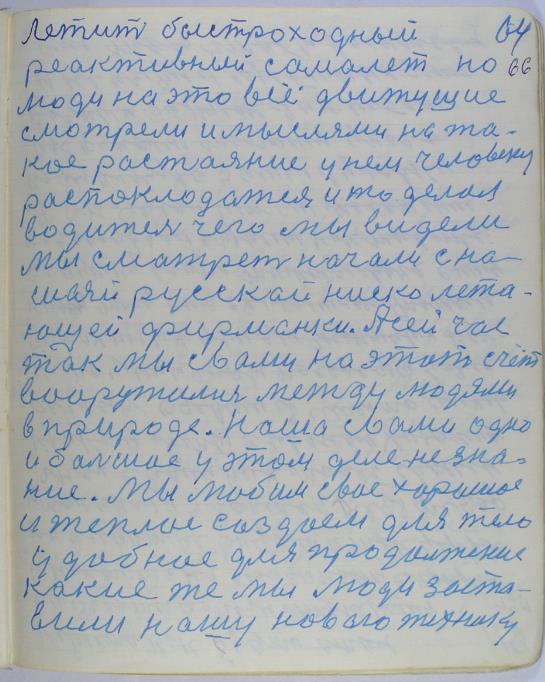 Летит быстроходный 64
реактивный самалет но 66
люди на это всё движущие
смотрели и мыслями на та-
кое растаяние у нем человеку
распоклодатся и то делоя
водится чего мы видели
мы сматрет начали с на-
шаей русскай ниско лета-
ющей фирманки. А сей час
так мы свами на этот счёт
вооружились между людями
в природе. Наша свами одно
и балшое у этом деле незна-
ние. Мы любим свое хорошое
и теплое создаем для тело
удобное для продолжение
какие же мы люди заста-
вили нашу новаго технику